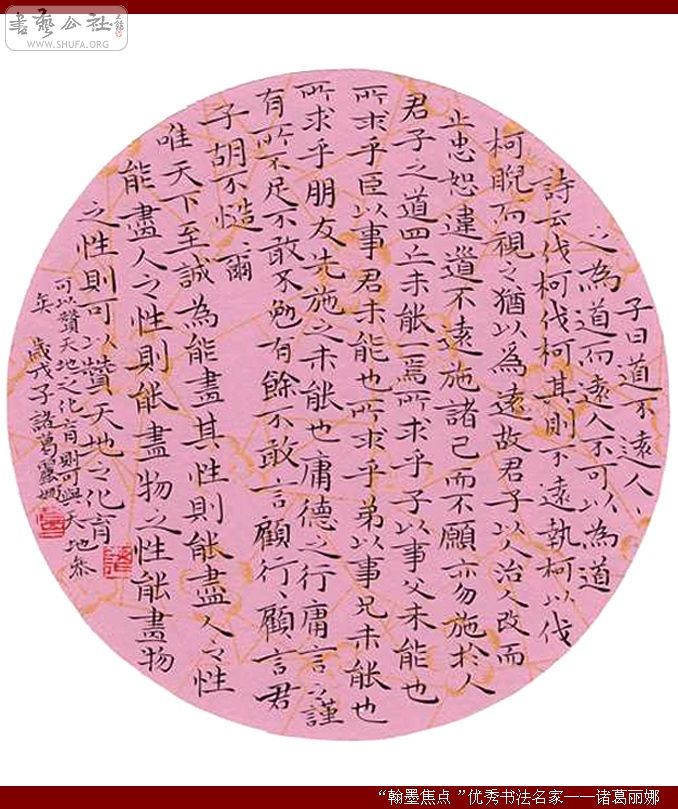 書藝公社
WWW.SHUFA.ORG
子曰道不遠人人
之為道而遠人不可以為道
詩云伐柯伐柯其則不遠執柯以伐
柯睨而視之猶以為遠故君子以人治人改而
止忠恕違道不遠施諸己而不願亦勿施於人
君子之道四丘未能一焉所求乎子以事父未能也
所求乎臣以事君未能也所求乎弟以事兄未能也
所求乎朋友先施之未能也庸德之行庸言之謹
有所不足不敢不勉有餘不敢言顧行行顧言君
子胡不慥慥爾
唯天下至誠為能盡其性則能盡人之性
能盡人之性則能盡物之性能盡物
之性則可以贊天地之化育
可以贊天地之化育則可與天地參
矣 歲戊子諸葛麗娜
“翰墨焦点 ”优秀书法名家——诸葛丽娜